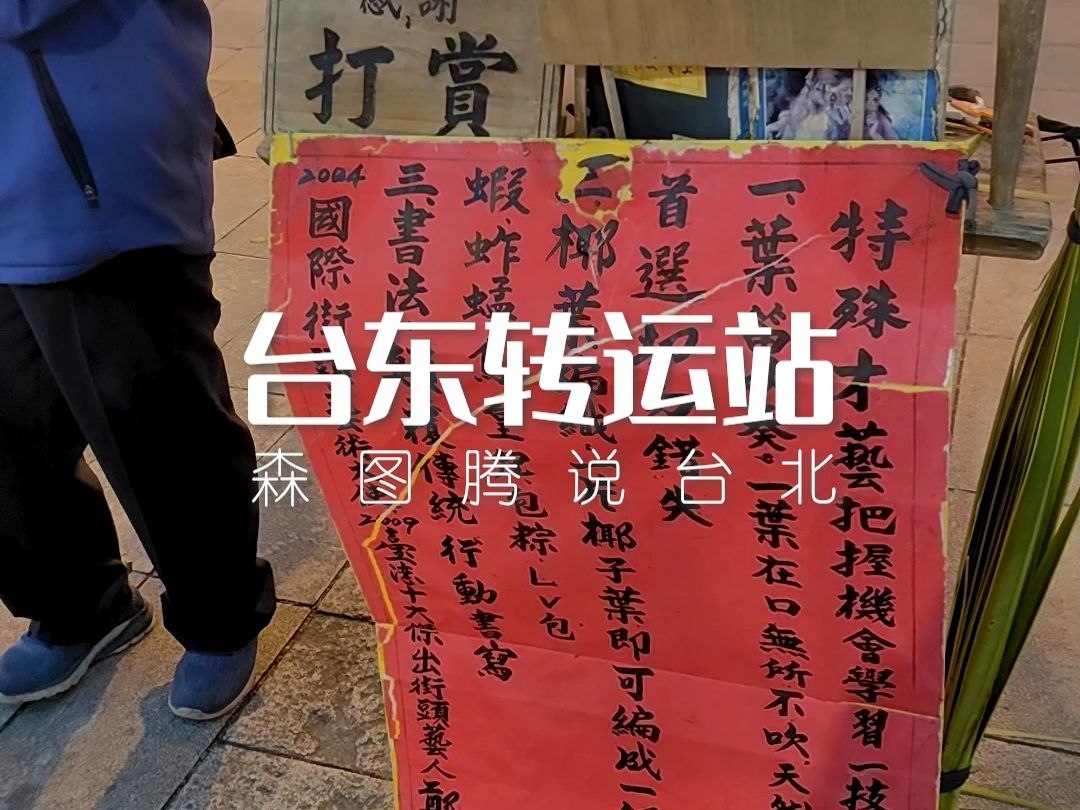 感謝
打賞
特殊才藝把握機會學習一技
一、葉笛
奏.一葉在口無所不吹.天
首選
錯失
二.椰葉編織
椰子葉即可編成一
蝦.蚱蜢
皇
包粽.LV包
三.書法
復傳統行動書寫
2004國際街
2009臺灣十大傑出街頭藝人鄭
台东转运站
森图腾说台北